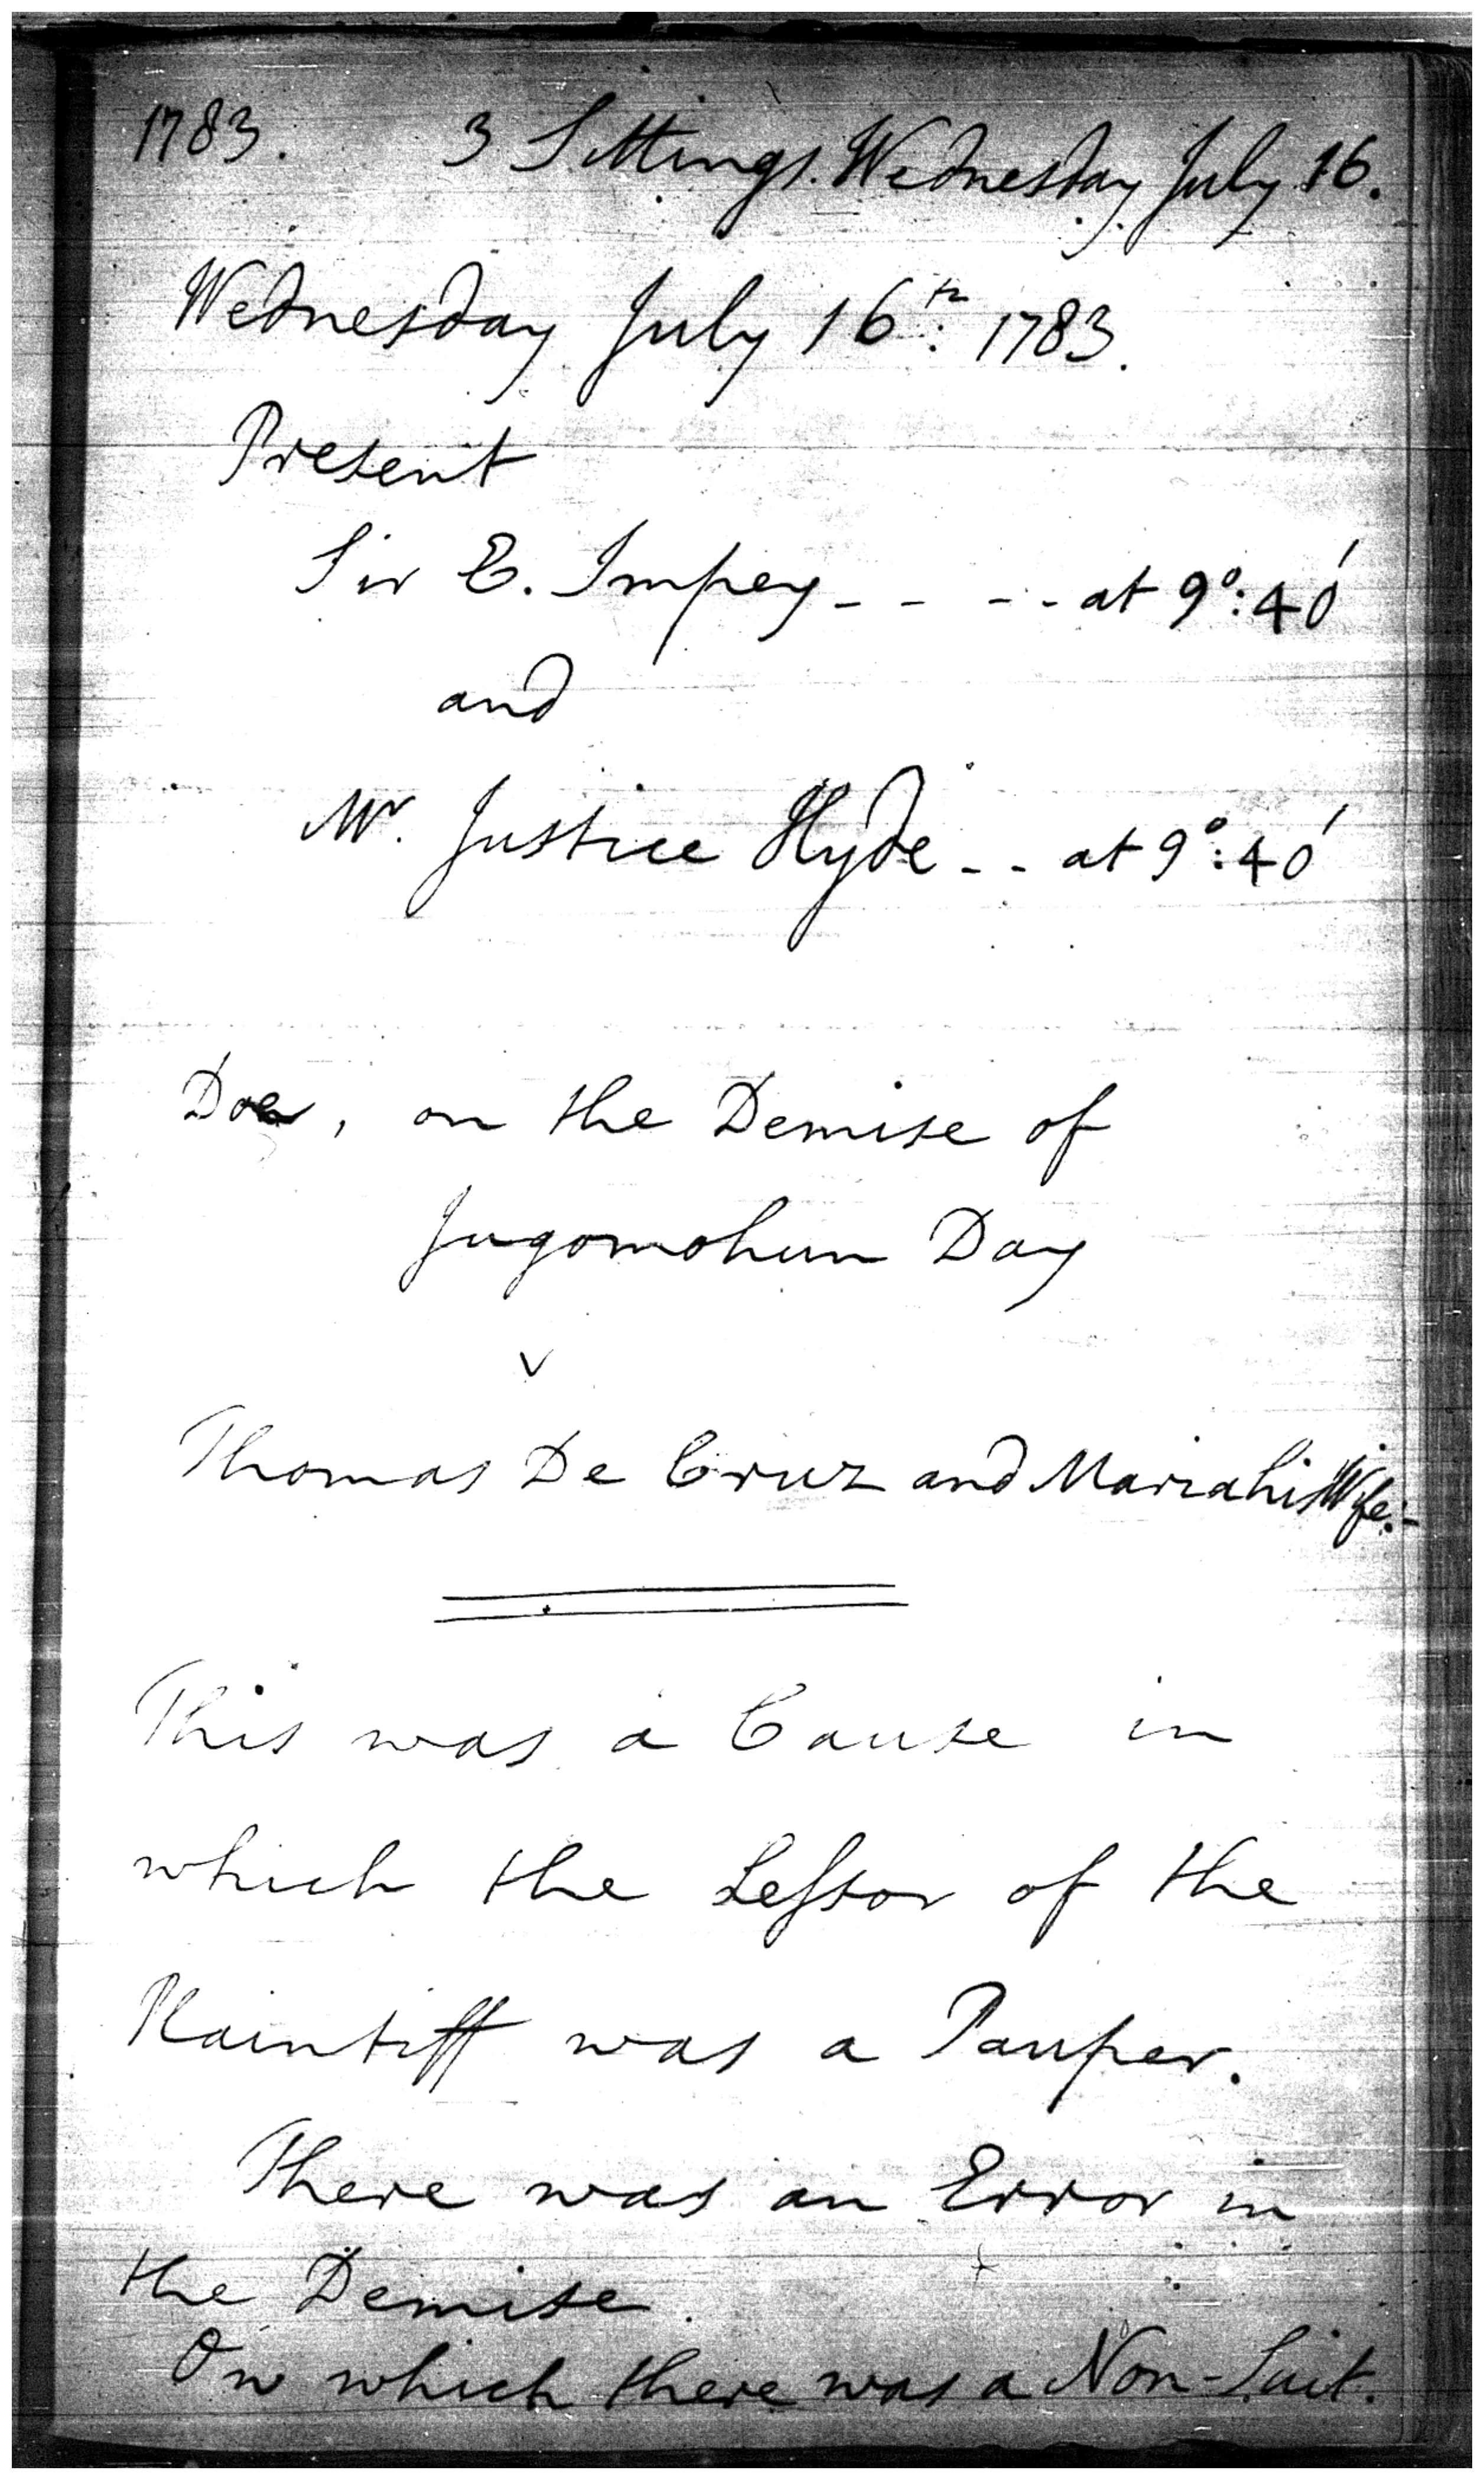 1783. 3 Sittings. Wednesday July 16.
Wednesday July 16th: 1783.
Present
Sir E. Impey - - - - at 9°:40'
and
Mr. Justice Hyde - - at 9°:40'
Doe, on the Demise of
Jugomohun Day
v
Thomas De Cruz and Maria his Wife.-
This was a Cause in
which the Leſsor of the
Plaintiff was a Pauper.
There was an Error in
the Demise.
On which there was a Non-Suit.